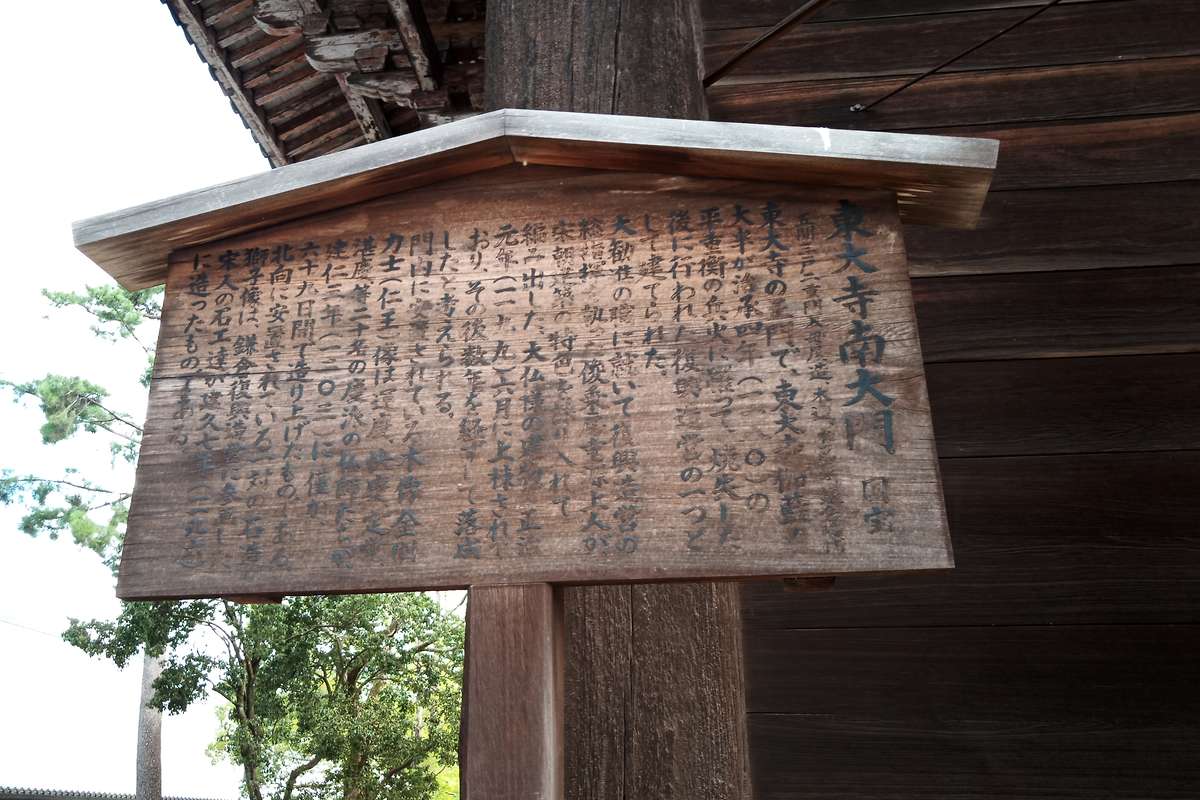 東大寺南大門 国宝
五間三戸二重門 入母屋造 本瓦葺
東大寺の正門で、東大寺伽藍の
大半が治承四年(一一八〇)の
平重衡の兵火に罹って焼失した
後に行われた復興造営の一つと
して建てられた。
大勧進の職に就いて復興造営の
総指揮を執った俊乗房重源上人が
宋朝建築の特色を採り入れて
編み出した、大仏様の建物。正治
元年(一一九九)六月に上棟されて
おり、その後数年を経て落慶
したと考えられる。
門内に安置されている木像金剛
力士(仁王)像は運慶、快慶、定覚、
湛慶等二十名の慶派の仏師たちが
建仁三年(一二〇三)に僅か
六十九日間で造り上げたものである
北向に安置されている一対の石造
獅子像は、鎌倉復興造営に参画した
宋人の石工達が建久七年(一一九六)
に造ったものである。